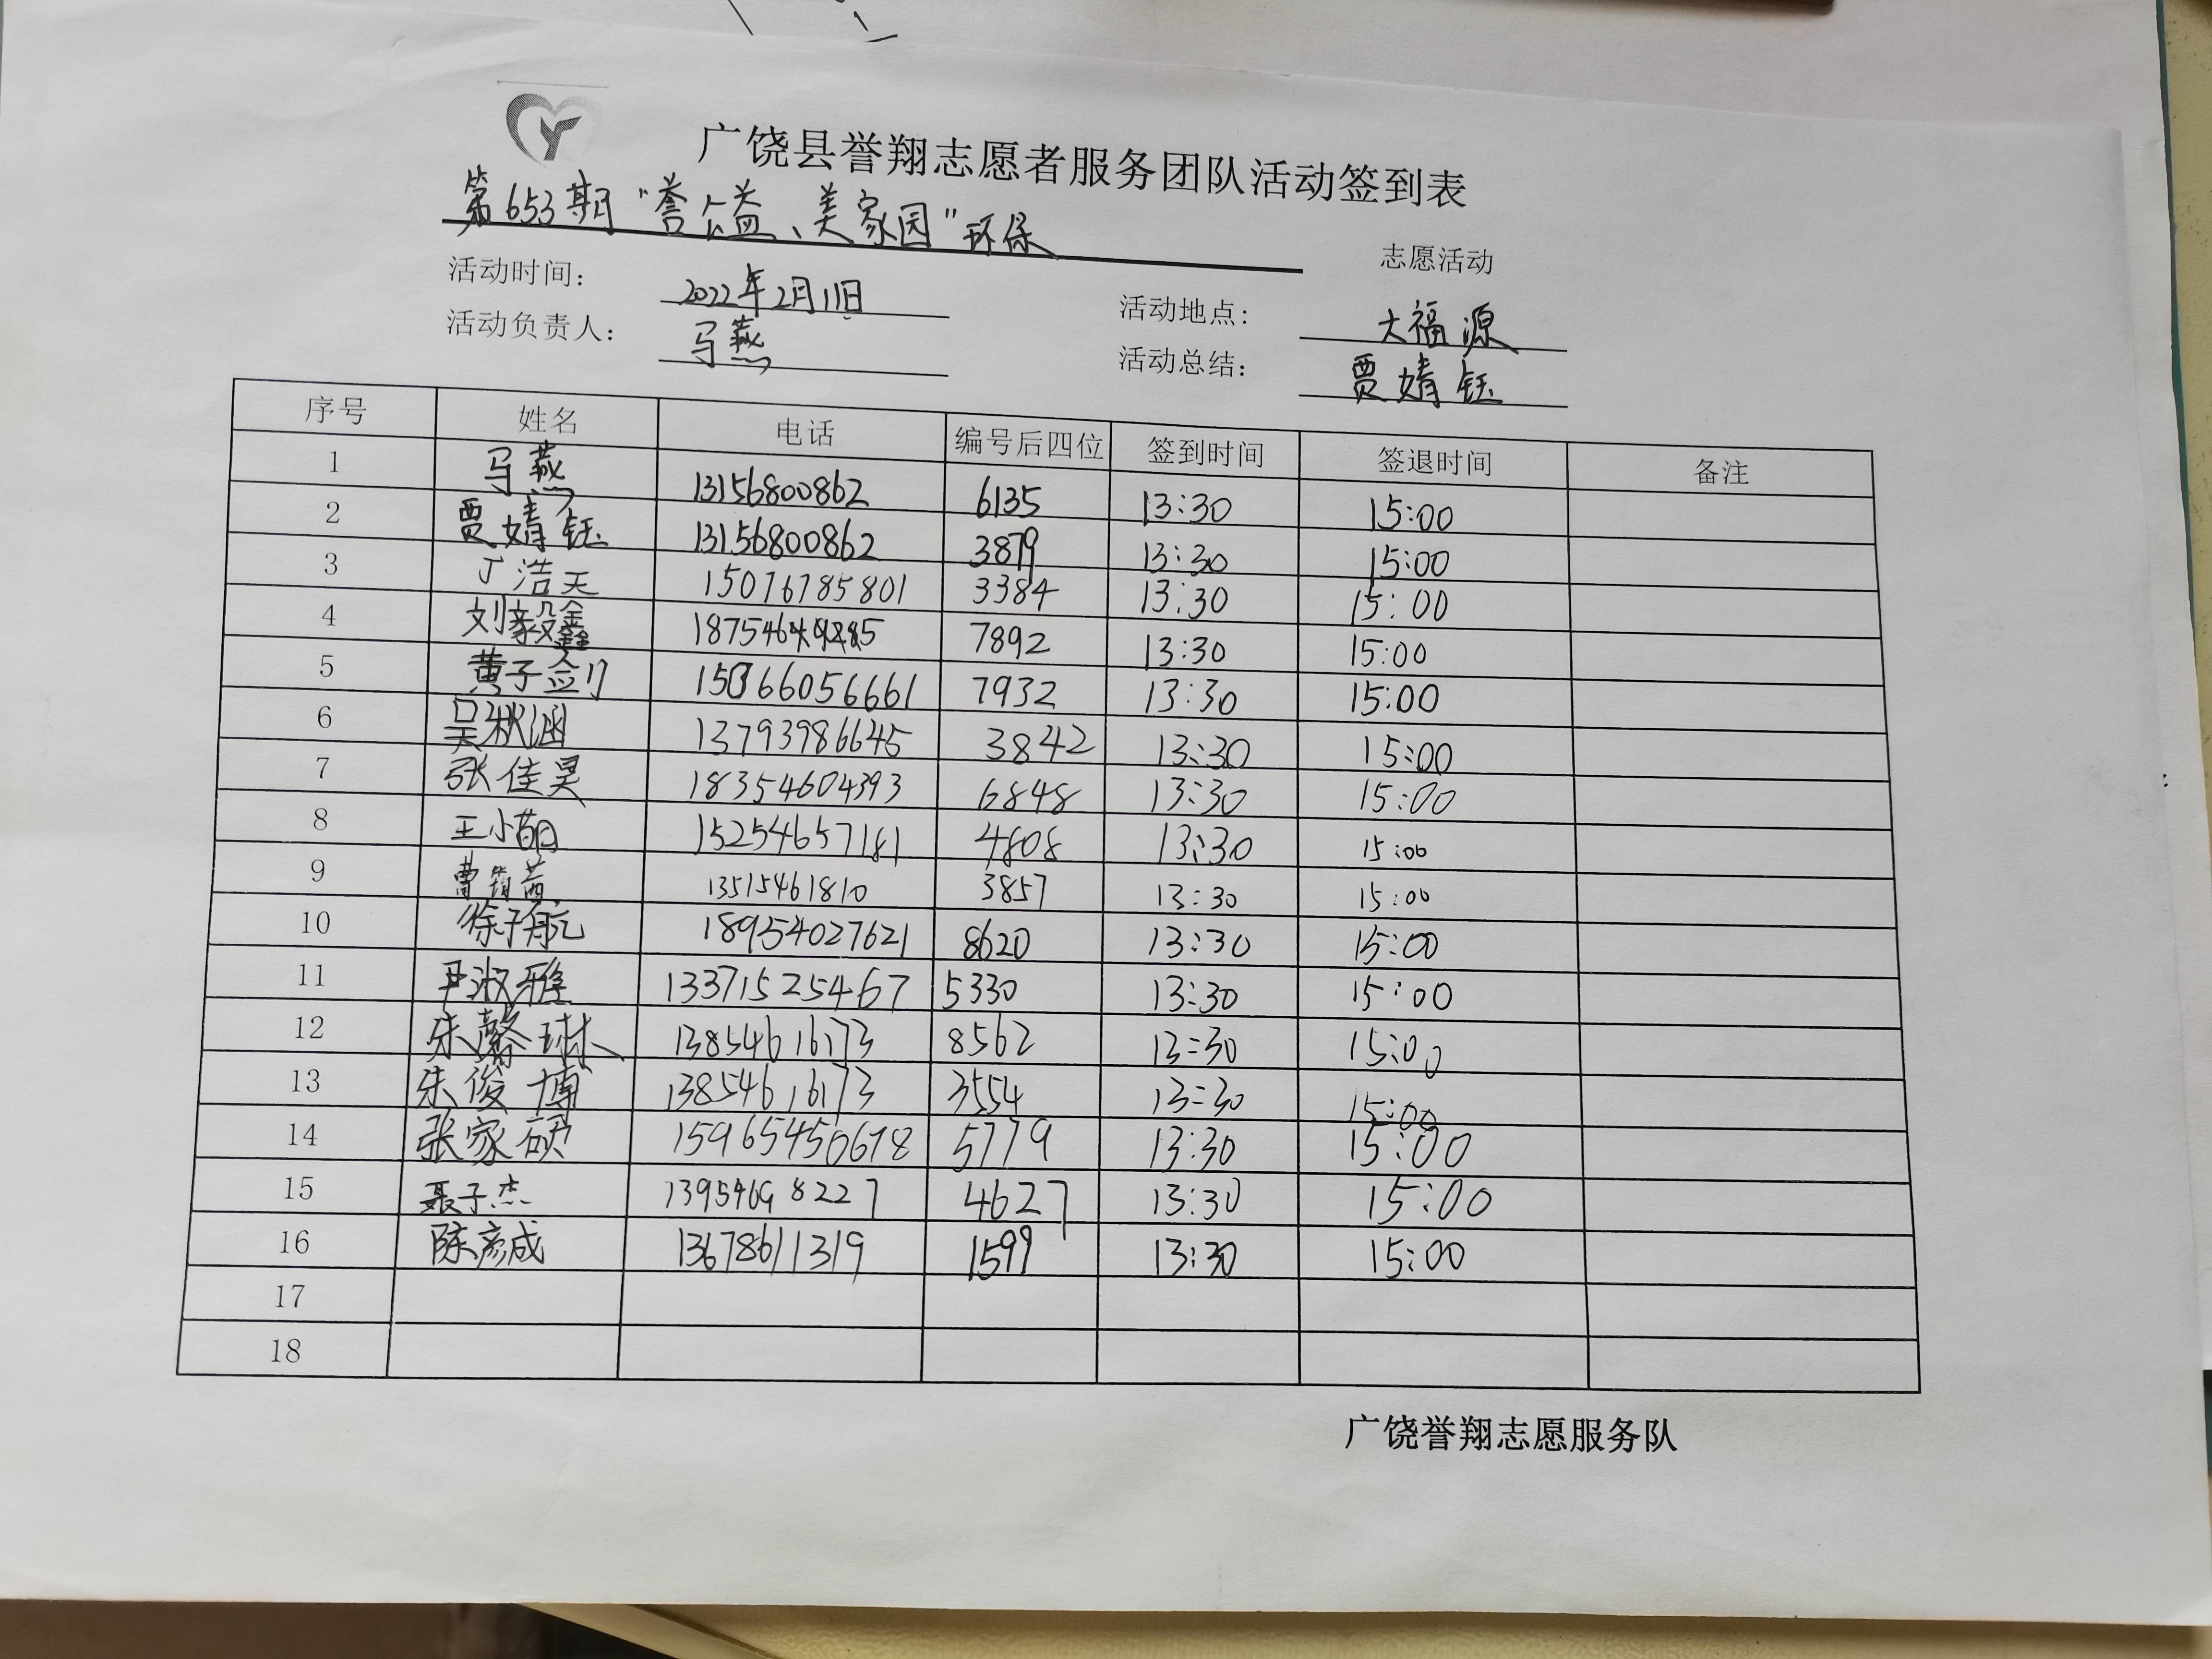 广饶县誉翔志愿者服务团队活动签到表
第653期“誉公益、美家园”环保 志愿活动
活动时间: 2022年2月11日 活动地点: 大福源
活动负责人: 马燕 活动总结: 贾婧钰
序号 姓名 电话 编号后四位 签到时间 签退时间 备注
1 马燕 13156800862 6135 13:30 15:00
2 贾婧钰 13156800862 3879 13:30 15:00
3 丁浩天 15076785801 3384 13:30 15:00
4 刘毅鑫 7892 13:30 15:00
5 黄子剑 15066056661 7932 13:30 15:00
6 吴秋涵 13793986645 3842 13:30 15:00
7 张佳昊 18354604393 6848 13:30 15:00
8 王小萌 15254657181 4808 13:30 15:00
9 曹茜 13515461810 3857 13:30 15:00
10 徐子航 18954027621 8620 13:30 15:00
11 尹淑雅 13371525467 5330 13:30 15:00
12 朱馨琳 13854616173 8562 13:30 15:00
13 朱俊博 13854616173 3554 13:30 15:00
14 张家硕 15965450678 5779 13:30 15:00
15 聂子杰 13954698227 4627 13:30 15:00
16 陈彦成 13678611319 1599 13:30 15:00
17
18
广饶誉翔志愿服务队